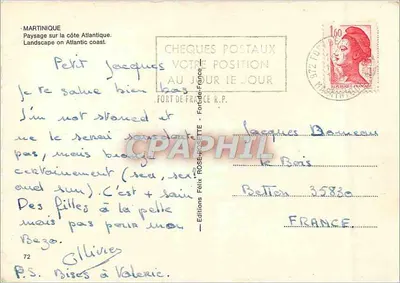 MARTINIQUE
Paysage sur la côte Atlantique.
Landscape on Atlantic coast.
Petit Jacques
Je te salue bien bas
I'm not stoned et
ne le serai
pas, mais
certainement (sea,
and sun). C'est + sain
Des filles à la pelle
mais pas pour mon
Bezo.
72
P.S. Bises à Valerie.
Editions Félix ROSE-ROSETTE - Fort-de-France
CHEQUES POSTAUX
VOTRE POSITION
AU JOUR LE JOUR
FORT DE FRANCE R.P.
1,60
MARTINIQUE
CPAPHIL
Jacques
Le Bois
Betton 35830
FRANCE.